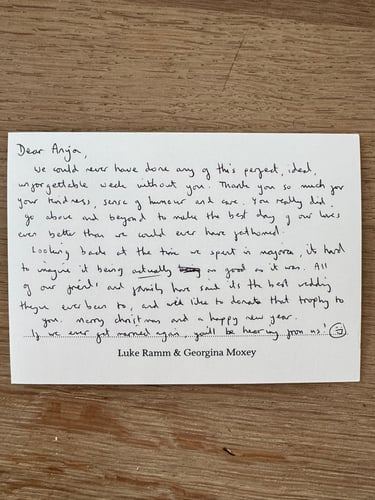 Dear Anja,
We could never have done any of this perfect, ideal,
unforgettable week without you. Thank you so much for
your kindness, sense of humour and care. You really did
go above and beyond to make the best day of our lives
even better than we could ever have fathomed.
Looking back at the time we spent in majorca, its hard
to imagine it being actually as good as it was. All
of our friends and family have said its the best wedding
theyve ever been to, and we'd like to donate that trophy to
you. Merry christmas and a happy new year.
If we ever get married again, you'll be hearing from us!
Luke Ramm & Georgina Moxey